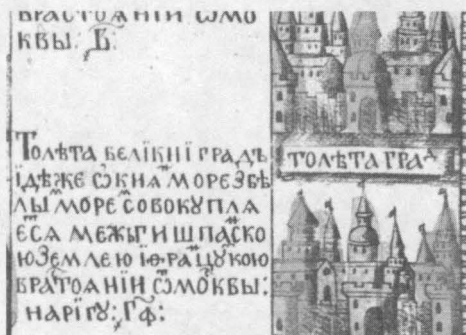 ВРАСТОѦНІИ ѾМО
КВЫ. В҃.
ТОЛѢТА ВЕЛІКНІ ГРАДЪ
ІДѢЖЕ ѾКНА МОРЕ ЗБѢ
ЛЫ МОРЕ СОВОКУПЛА
ЕСА МЕЖЪГИШПАСКО
Ю ЗЕМЛЕЮ ІѲРАЦУКОЮ
ВРАТОАНІИ ѾМОКВЫ:
НАРІГУ: ГФ:
ТОЛѢТА ГРАД